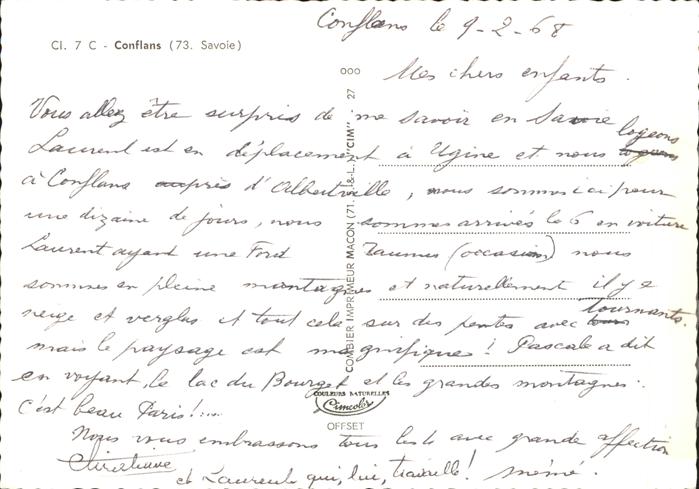 Conflans le 9-2-68
Cl. 7 C - Conflans (73. Savoie)
Mes chers enfants.
Vous allez être surpris de me savoir en Savoie
Laurent est en déplacement à Ugine et nous logeons
à Conflans auprès d'Albertville, nous sommes ici pour
une dizaine de jours, nous sommes arrivés le 6 en voiture
Laurent ayant une Ford Taunus (occasion) nous
sommes en pleine montagnes et naturellement il y a
neige et verglas et tout cela sur des pentes avec tournants.
mais le paysage est magnifique ! Pascale a dit
en voyant le lac du Bourget et les grandes montagnes :
c'est beau Paris !....
Nous vous embrassons tous les 4 avec grande affection
Christiane
et Laurent qui, lui, travaille ! mémé.
COMBIER IMPRIMEUR MACON (71. S.-&-L.) "CIM" - 27 000
COULEURS NATURELLES
Cimcolor
OFFSET